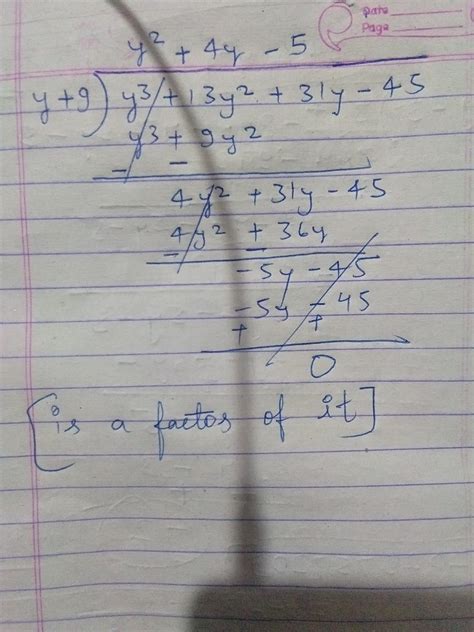 Date
Page
y² + 4y - 5
y + 9 ) y³ + 13y² + 31y - 45
y³ + 9y²
- -
4y² + 31y - 45
4y² + 36y
- -
-5y - 45
-5y - 45
+ +
0
[is a factos of it]